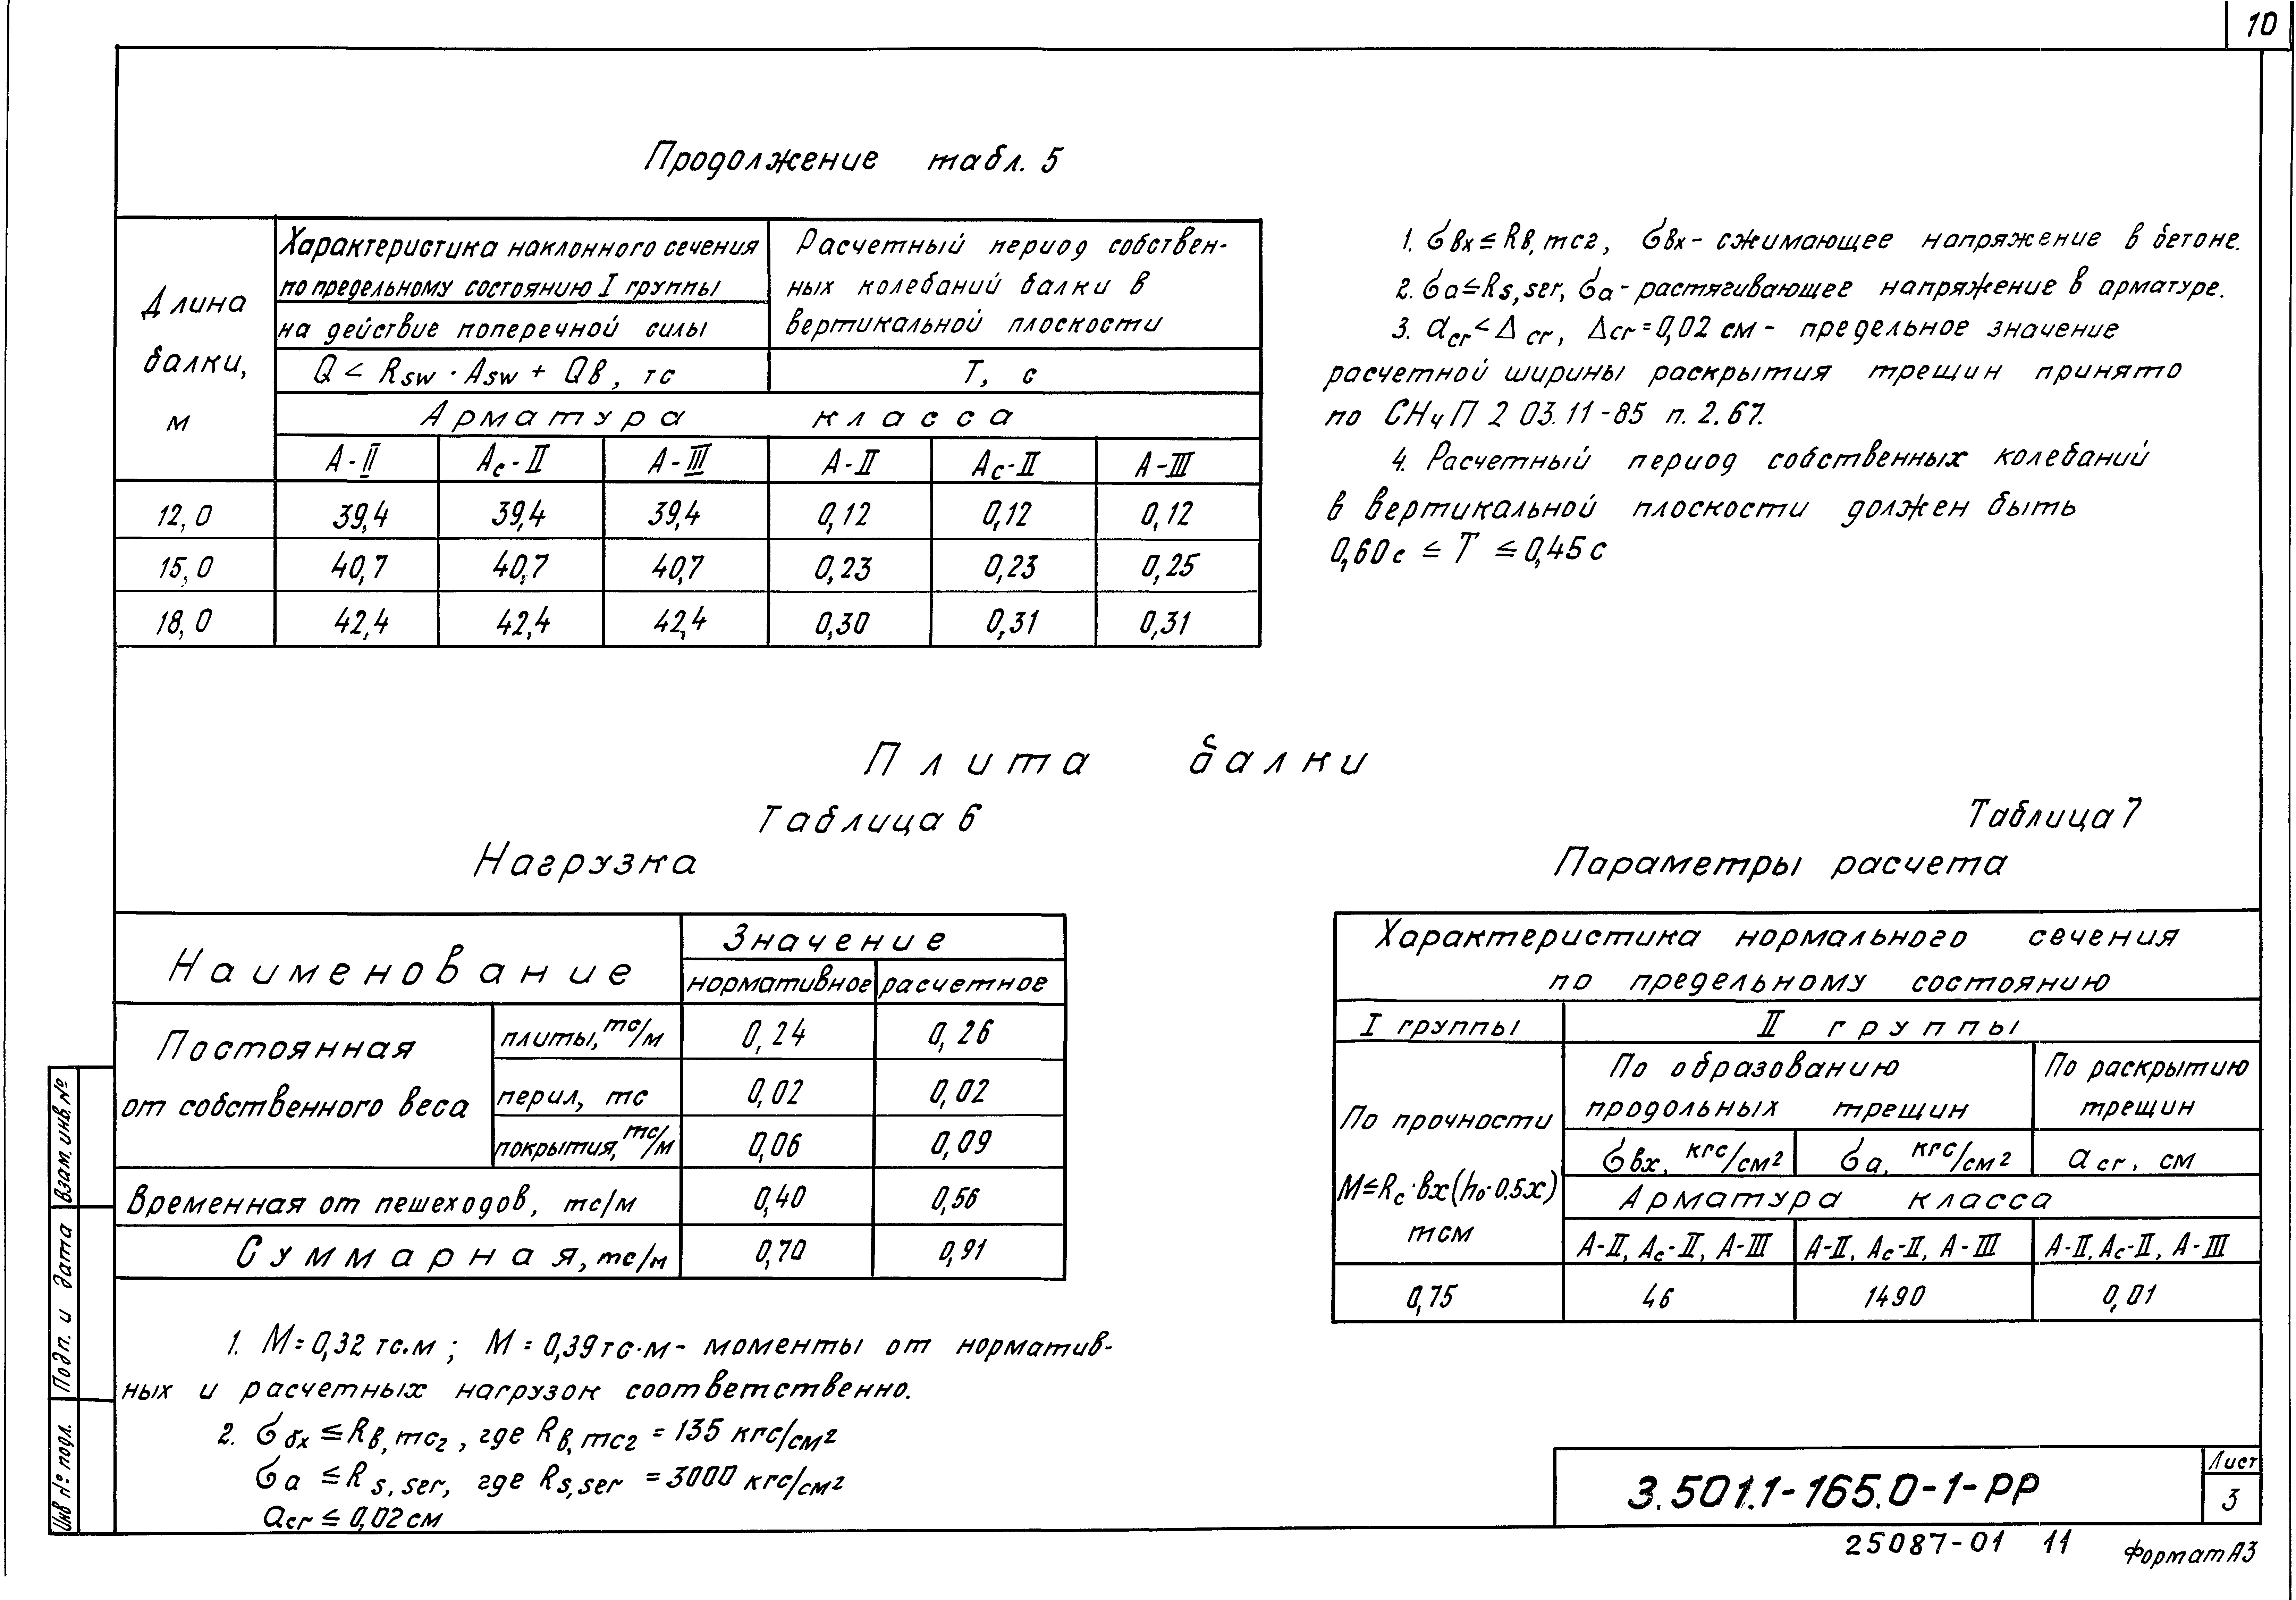 10
Продолжение табл. 5
Длина балки, м
Характеристика наклонного сечения
по предельному состоянию I группы
на действие поперечной силы
Q < Rsw · Asw + Qв, тс
Расчетный период собствен-
ных колебаний балки в
вертикальной плоскости
Т, с
Арматура класса
А-II Ас-II А-III А-II Ас-II А-III
12,0 39,4 39,4 39,4 0,12 0,12 0,12
15,0 40,7 40,7 40,7 0,23 0,23 0,25
18,0 42,4 42,4 42,4 0,30 0,31 0,31
1. σвх ≤ Rв,mc2, σвх - сжимающее напряжение в бетоне.
2. σа ≤ Rs,ser, σа - растягивающее напряжение в арматуре.
3. αcr < Δcr, Δcr = 0,02 см - предельное значение
расчетной ширины раскрытия трещин принято
по СНиП 2 03.11-85 п. 2.67.
4. Расчетный период собственных колебаний
в вертикальной плоскости должен быть
0,60с ≤ Т ≤ 0,45с
Плита балки
Таблица 6
Нагрузка
Наименование
Значение
нормативное расчетное
Постоянная
от собственного веса
плиты, тс/м 0,24 0,26
перил, тс 0,02 0,02
покрытия, тс/м 0,06 0,09
Временная от пешеходов, тс/м 0,40 0,56
Суммарная, тс/м 0,70 0,91
1. М = 0,32 тс.м; М = 0,39 тс·м - моменты от норматив-
ных и расчетных нагрузок соответственно.
2. σбх ≤ Rв,mc2, где Rв,mc2 = 135 кгс/см²
σа ≤ Rs,ser, где Rs,ser = 3000 кгс/см²
acr ≤ 0,02 см
Таблица 7
Параметры расчета
Характеристика нормального сечения
по предельному состоянию
I группы II группы
По прочности
М ≤ Rc·вх(h₀-0.5х)
тсм
По образованию
продольных трещин
По раскрытию
трещин
σвх, кгс/см² σа, кгс/см² acr, см
Арматура класса
А-II, Ас-II, А-III А-II, Ас-II, А-III А-II, Ас-II, А-III
0,75 46 1490 0,01
Взам. инв. №
Подп. и дата
Инв № подл.
3.501.1-165.0-1-РР
Лист
3
25087-01 11
Формат А3